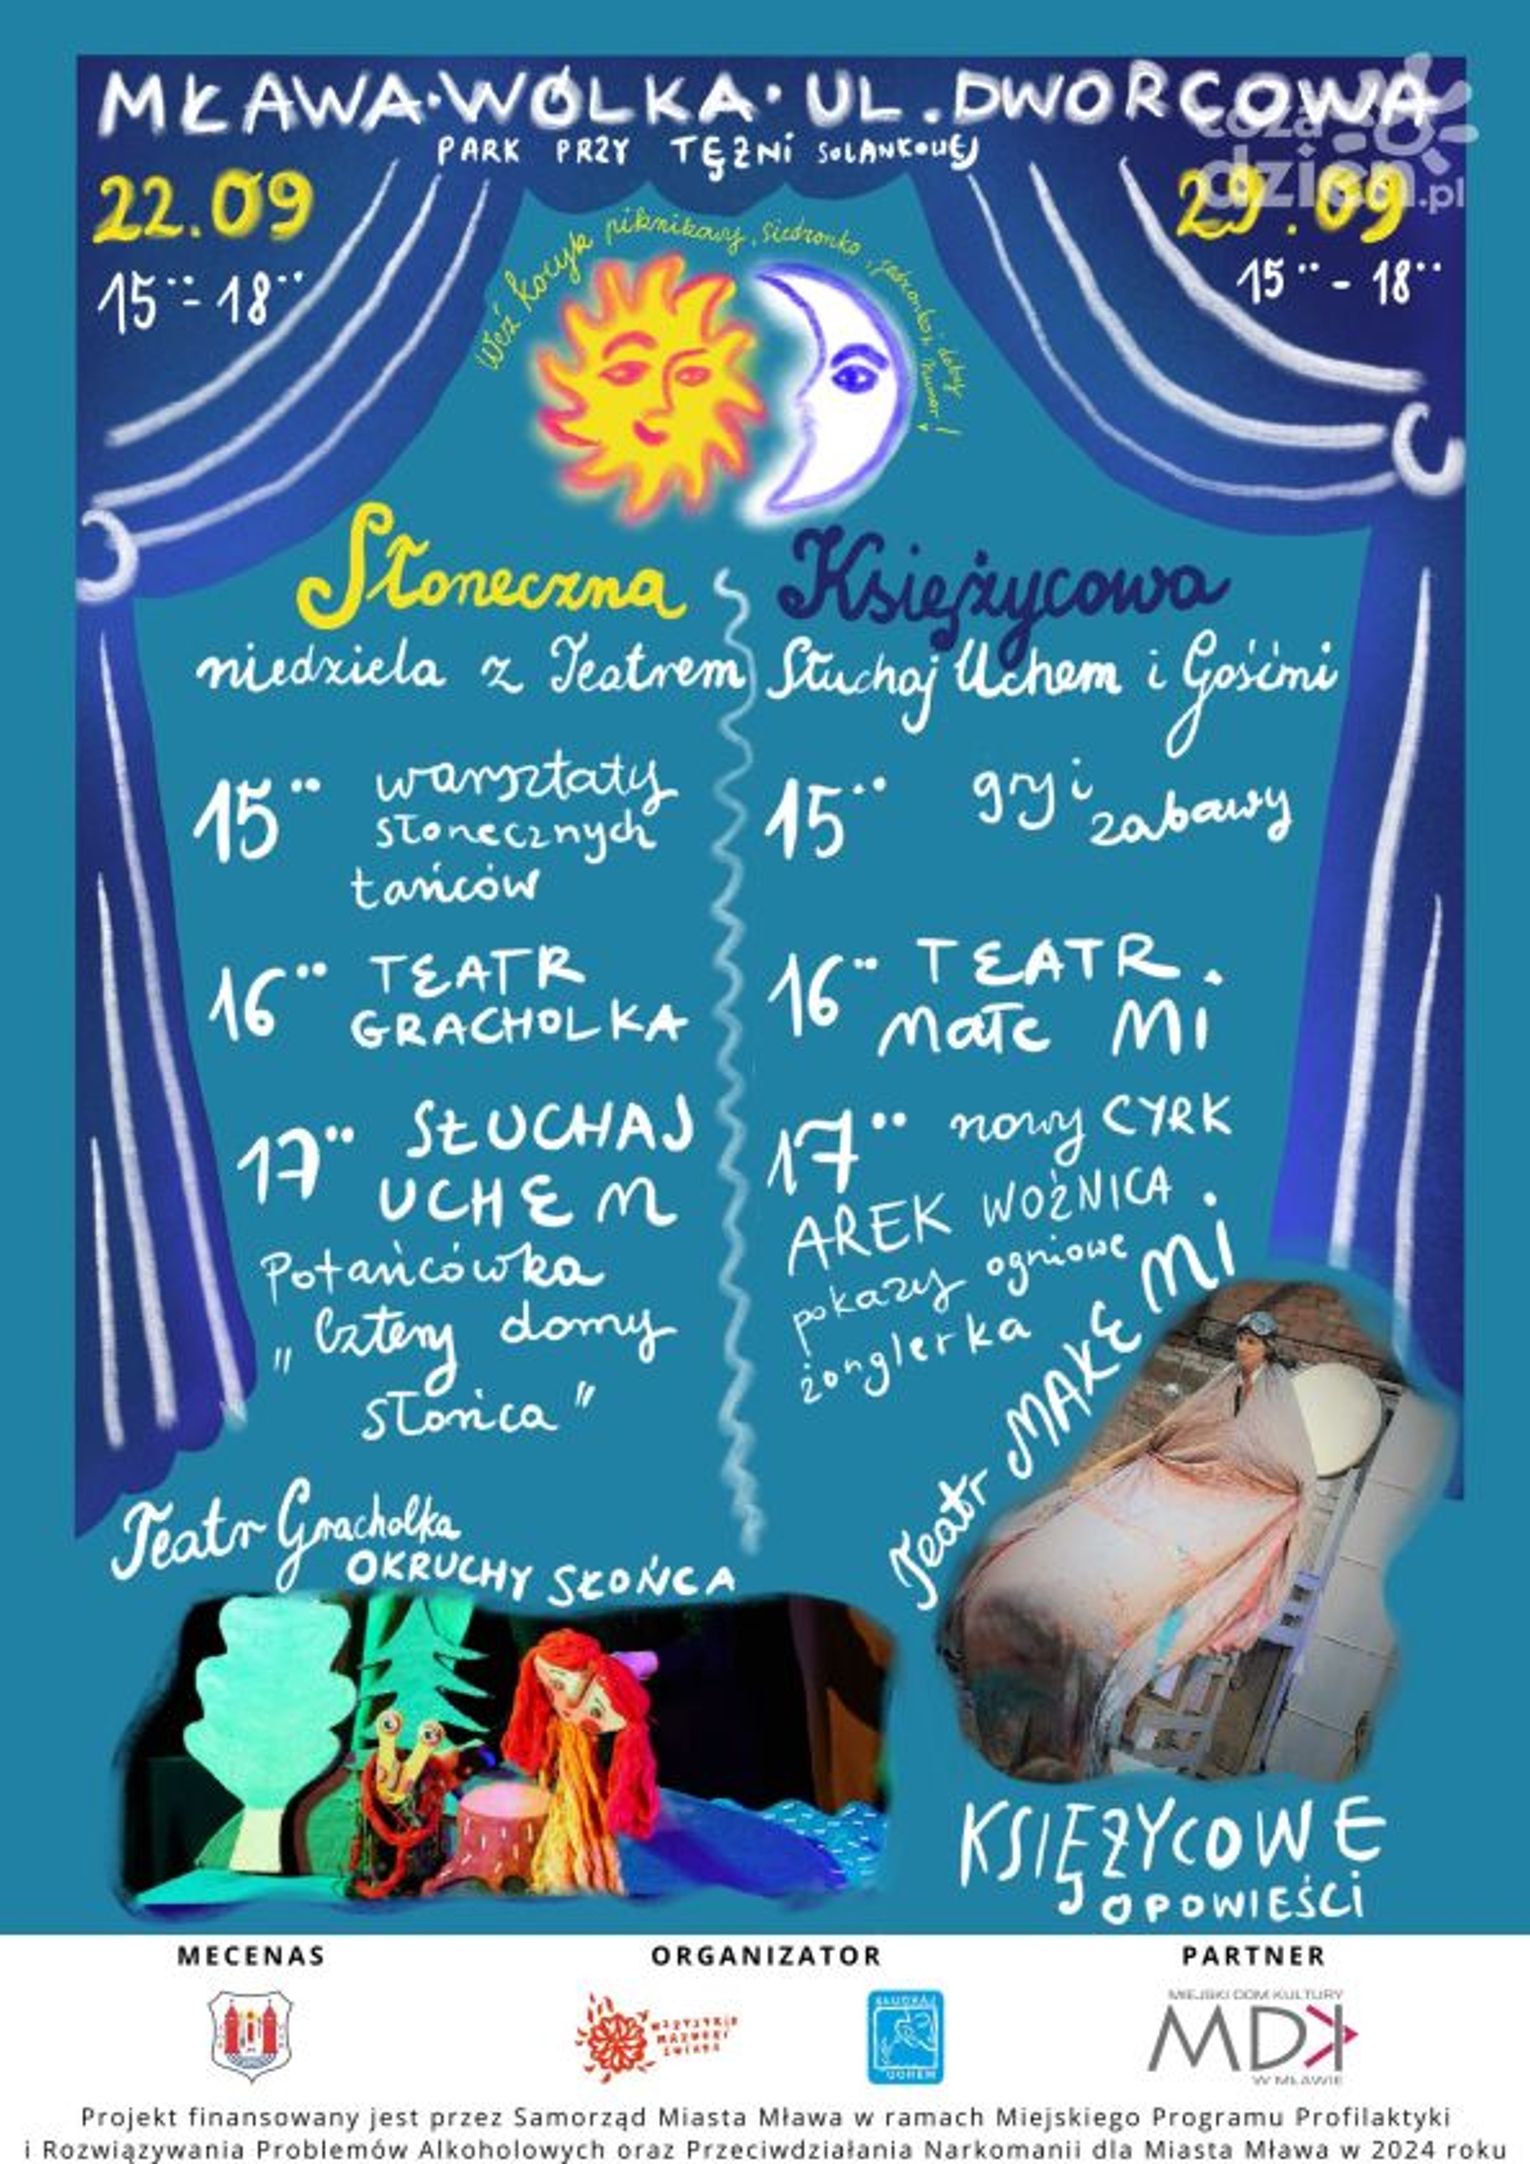 MŁAWA·WÓLKA· UL. DWORCOWA
PARK PRZY TĘŻNI SOLANKOWEJ
22.09
15⁰⁰-18⁰⁰
cozadzien.pl
29.09
15⁰⁰-18⁰⁰
Weź kocyk piknikowy, siedzonko, jedzonko i dobry humor!
Słoneczna
niedziela z Teatrem
Księżycowa
Słuchaj Uchem i Gośćmi
15⁰⁰ warsztaty
słonecznych
tańców
16⁰⁰ TEATR
GRACHOLKA
17⁰⁰ SŁUCHAJ
UCHEM
Potańcówka
„Cztery domy
słońca"
15⁰⁰ gry i
zabawy
16⁰⁰ TEATR
MAŁE MI
17⁰⁰ nowy CYRK
AREK WOŹNICA
pokazy ogniowe
żonglerka
Teatr Gracholka
OKRUCHY SŁOŃCA
Teatr MAŁE MI
KSIĘŻYCOWE
OPOWIEŚCI
MECENAS
ORGANIZATOR
PARTNER
SŁUCHAJ
UCHEM
MIEJSKI DOM KULTURY
MDK
W MŁAWIE
Projekt finansowany jest przez Samorząd Miasta Mława w ramach Miejskiego Programu Profilaktyki
i Rozwiązywania Problemów Alkoholowych oraz Przeciwdziałania Narkomanii dla Miasta Mława w 2024 roku